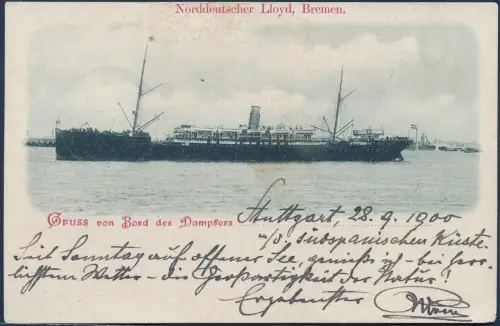 Norddeutscher Lloyd, Bremen.
Gruss von Bord des Dampfers Stuttgart, 28.9.1900
a/d. südspanischen Küste.
Seit Sonntag auf offener See, genieß ich - bei herr-
lichstem Wetter - die Großartigkeit der Natur!
Ergebenster